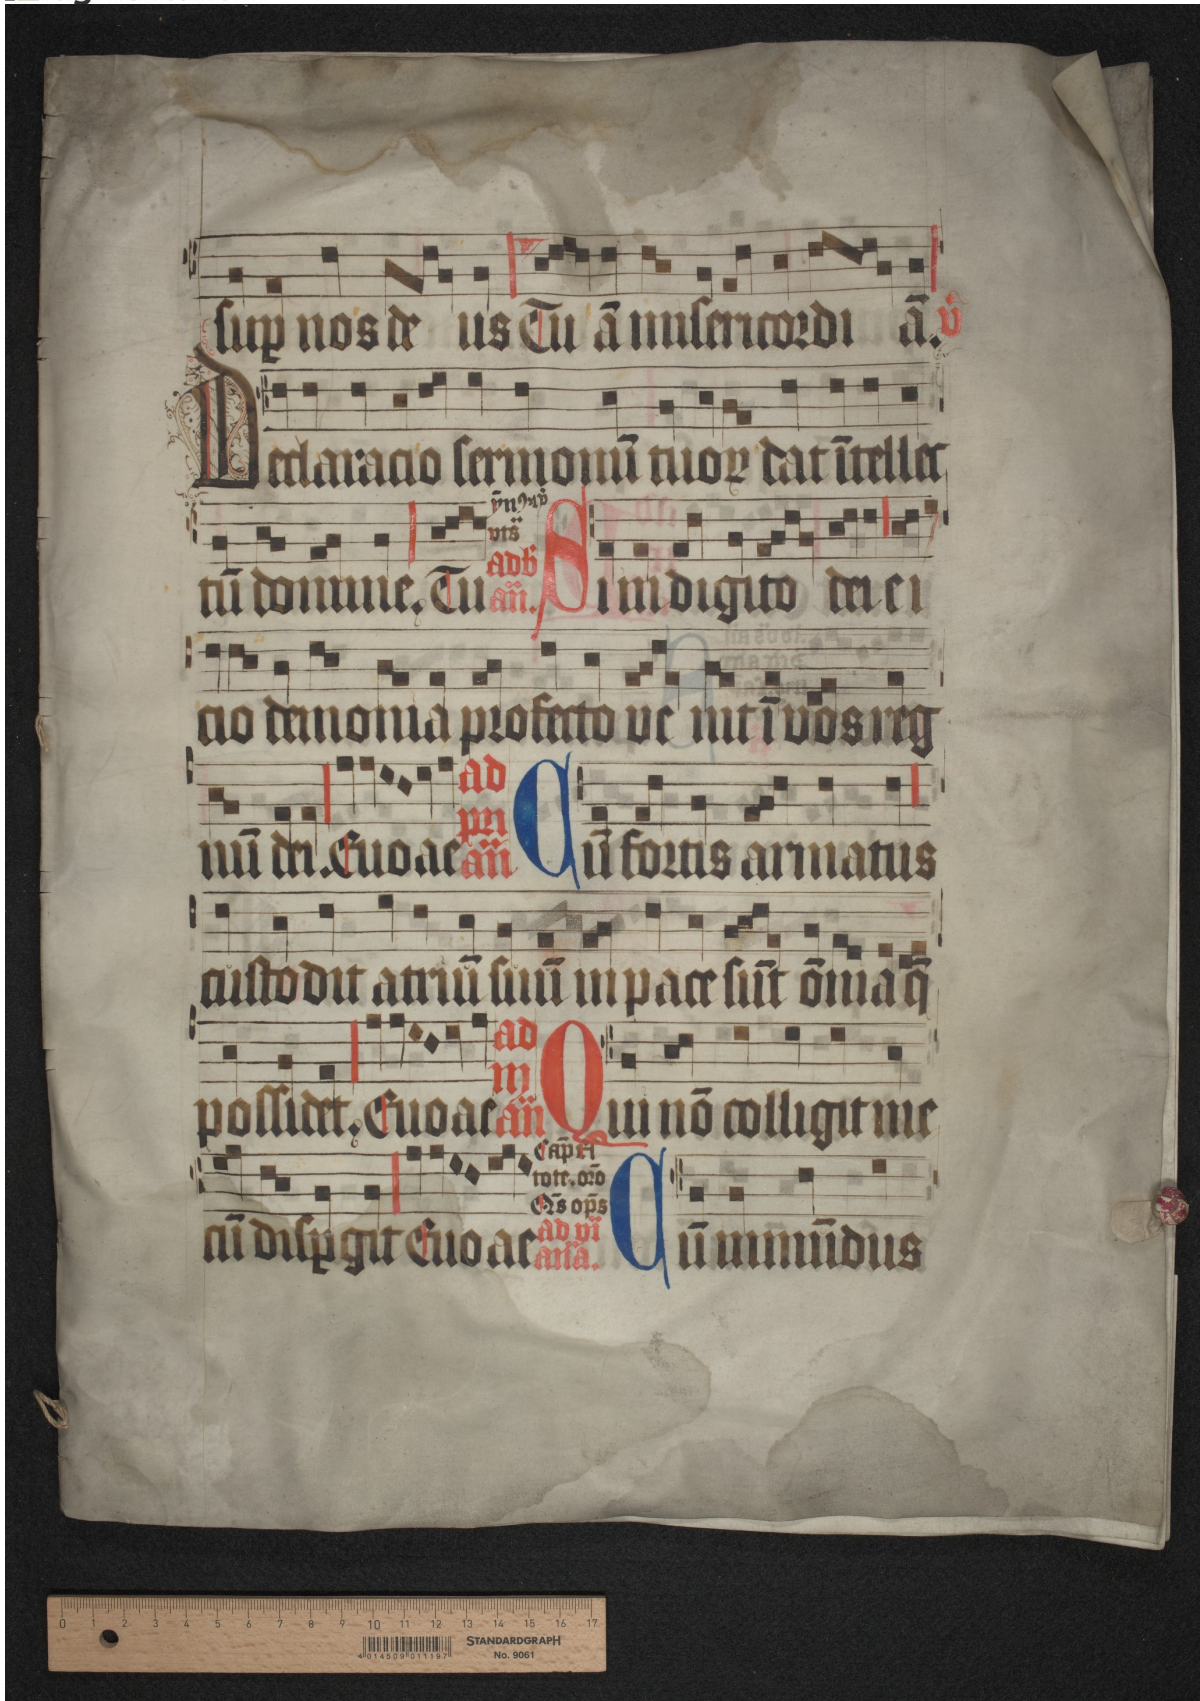 sup nos de us Tu ā misericordi ā. v̄
Declaracio sermonū tuoꝝ dat ītellec
tū domine. Tu adb an̄. Si in digito dei ei
cio demonia profecto ve nit ī vos reg
nū dei. Euo ae ad pri an̄ Cū fortis armatus
custodit atriū suū in pace sūt om̄ia q̄
possidet. Euo ae ad iii an̄ Qui nō colligit me
cū disꝑgit Euo ae Cū inmūdus
0 1 2 3 4 5 6 7 8 9 10 11 12 13 14 15 16 17
STANDARDGRAPH
4 014509 011197
No. 9061